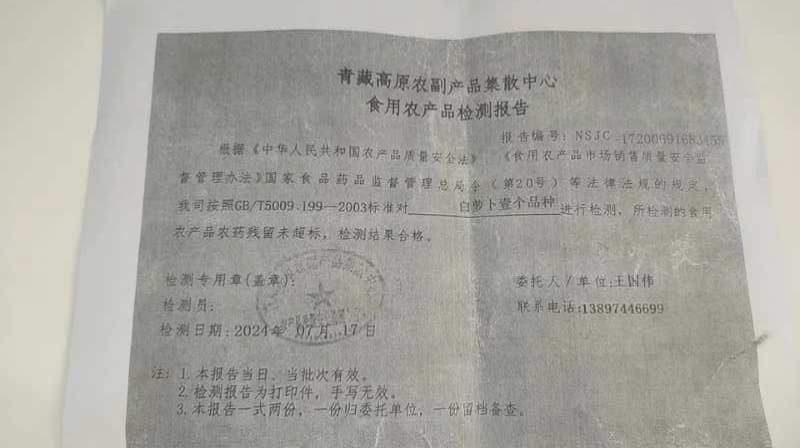 青藏高原农副产品集散中心
食用农产品检测报告
报告编号：NSJC-17200691683455
根据《中华人民共和国农产品质量安全法》、《食用农产品市场销售质量安全监
督管理办法》国家食品药品监督管理总局令（第20号）等法律法规的规定，
我司按照GB/T5009.199—2003标准对 白萝卜壹个品种 进行检测，所检测的食用
农产品农药残留未超标，检测结果合格。
检测专用章(盖章)： 委托人/单位:王国伟
检测员： 联系电话:13897446699
检测日期:2024年 07月 17日
注：1.本报告当日、当批次有效。
2.检测报告为打印件，手写无效。
3.本报告一式两份，一份归委托单位，一份留档备查。